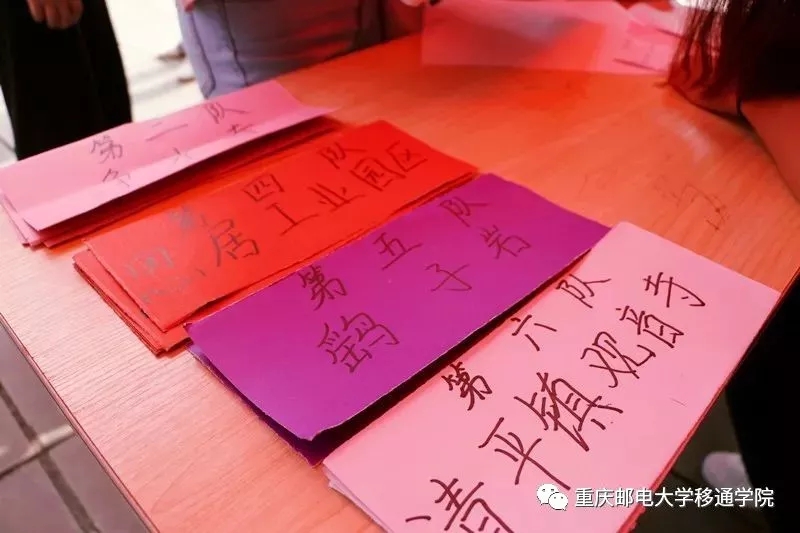 第二队
第四队
居工业园区
第五队
鹞子岩
第六队
清平镇观音寺
重庆邮电大学移通学院